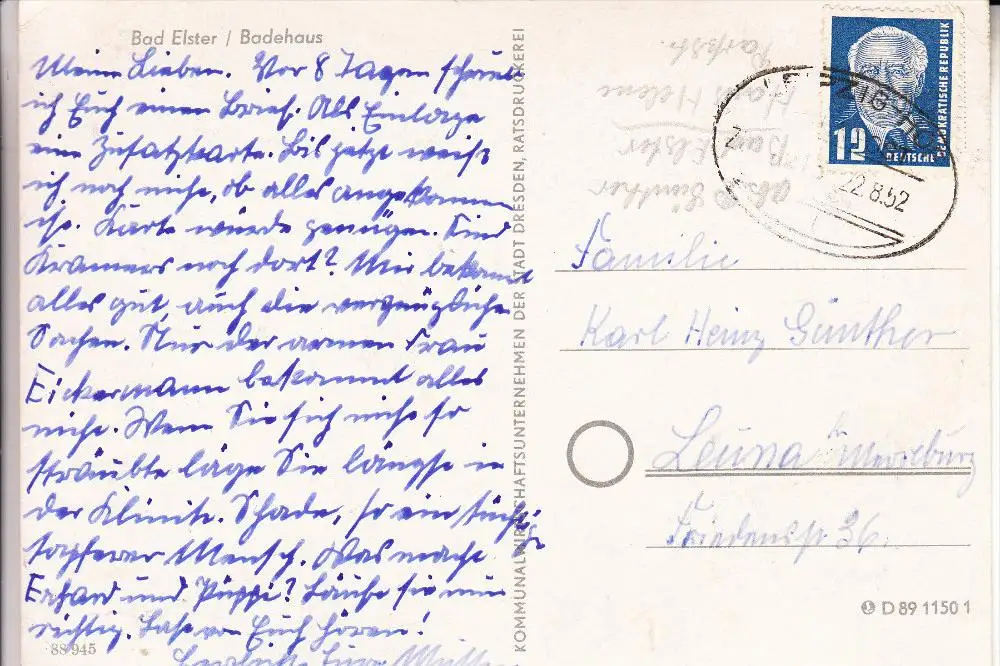 Bad Elster / Badehaus
Meine Lieben. Vor 8 Tagen schrieb
ich Euch einen Brief. Als Einlage
eine Zusatzkarte. Bis jetzt weiß
ich noch nicht, ob alles angekommen
ist. Karte würde genügen. Sind
Kramers noch dort? Mir bekommt
alles gut, auch die vorzügliche
Sachen. Nur der armen Frau
Eickermann bekommt alles
nicht. Wenn Sie sich nicht so
sträubte läge Sie längst in
der Klinik. Schade, so ein tüchtiger
tapferer Mensch. Was macht
Erhard und Püppi? Läuft sie nun
richtig. Laßt von Euch hören!
88 945
KOMMUNALWIRTSCHAFTSUNTERNEHMEN DER STADT DRESDEN, RATSDRUCKEREI
Abs. Günther
Bad Elster
Haus Helene
Parkstr.
12
DEUTSCHE
DEMOKRATISCHE REPUBLIK
22.8.52
Familie
Karl Heinz Günther
Leuna Merseburg
Friedensstr 36.
D 89 1150 1